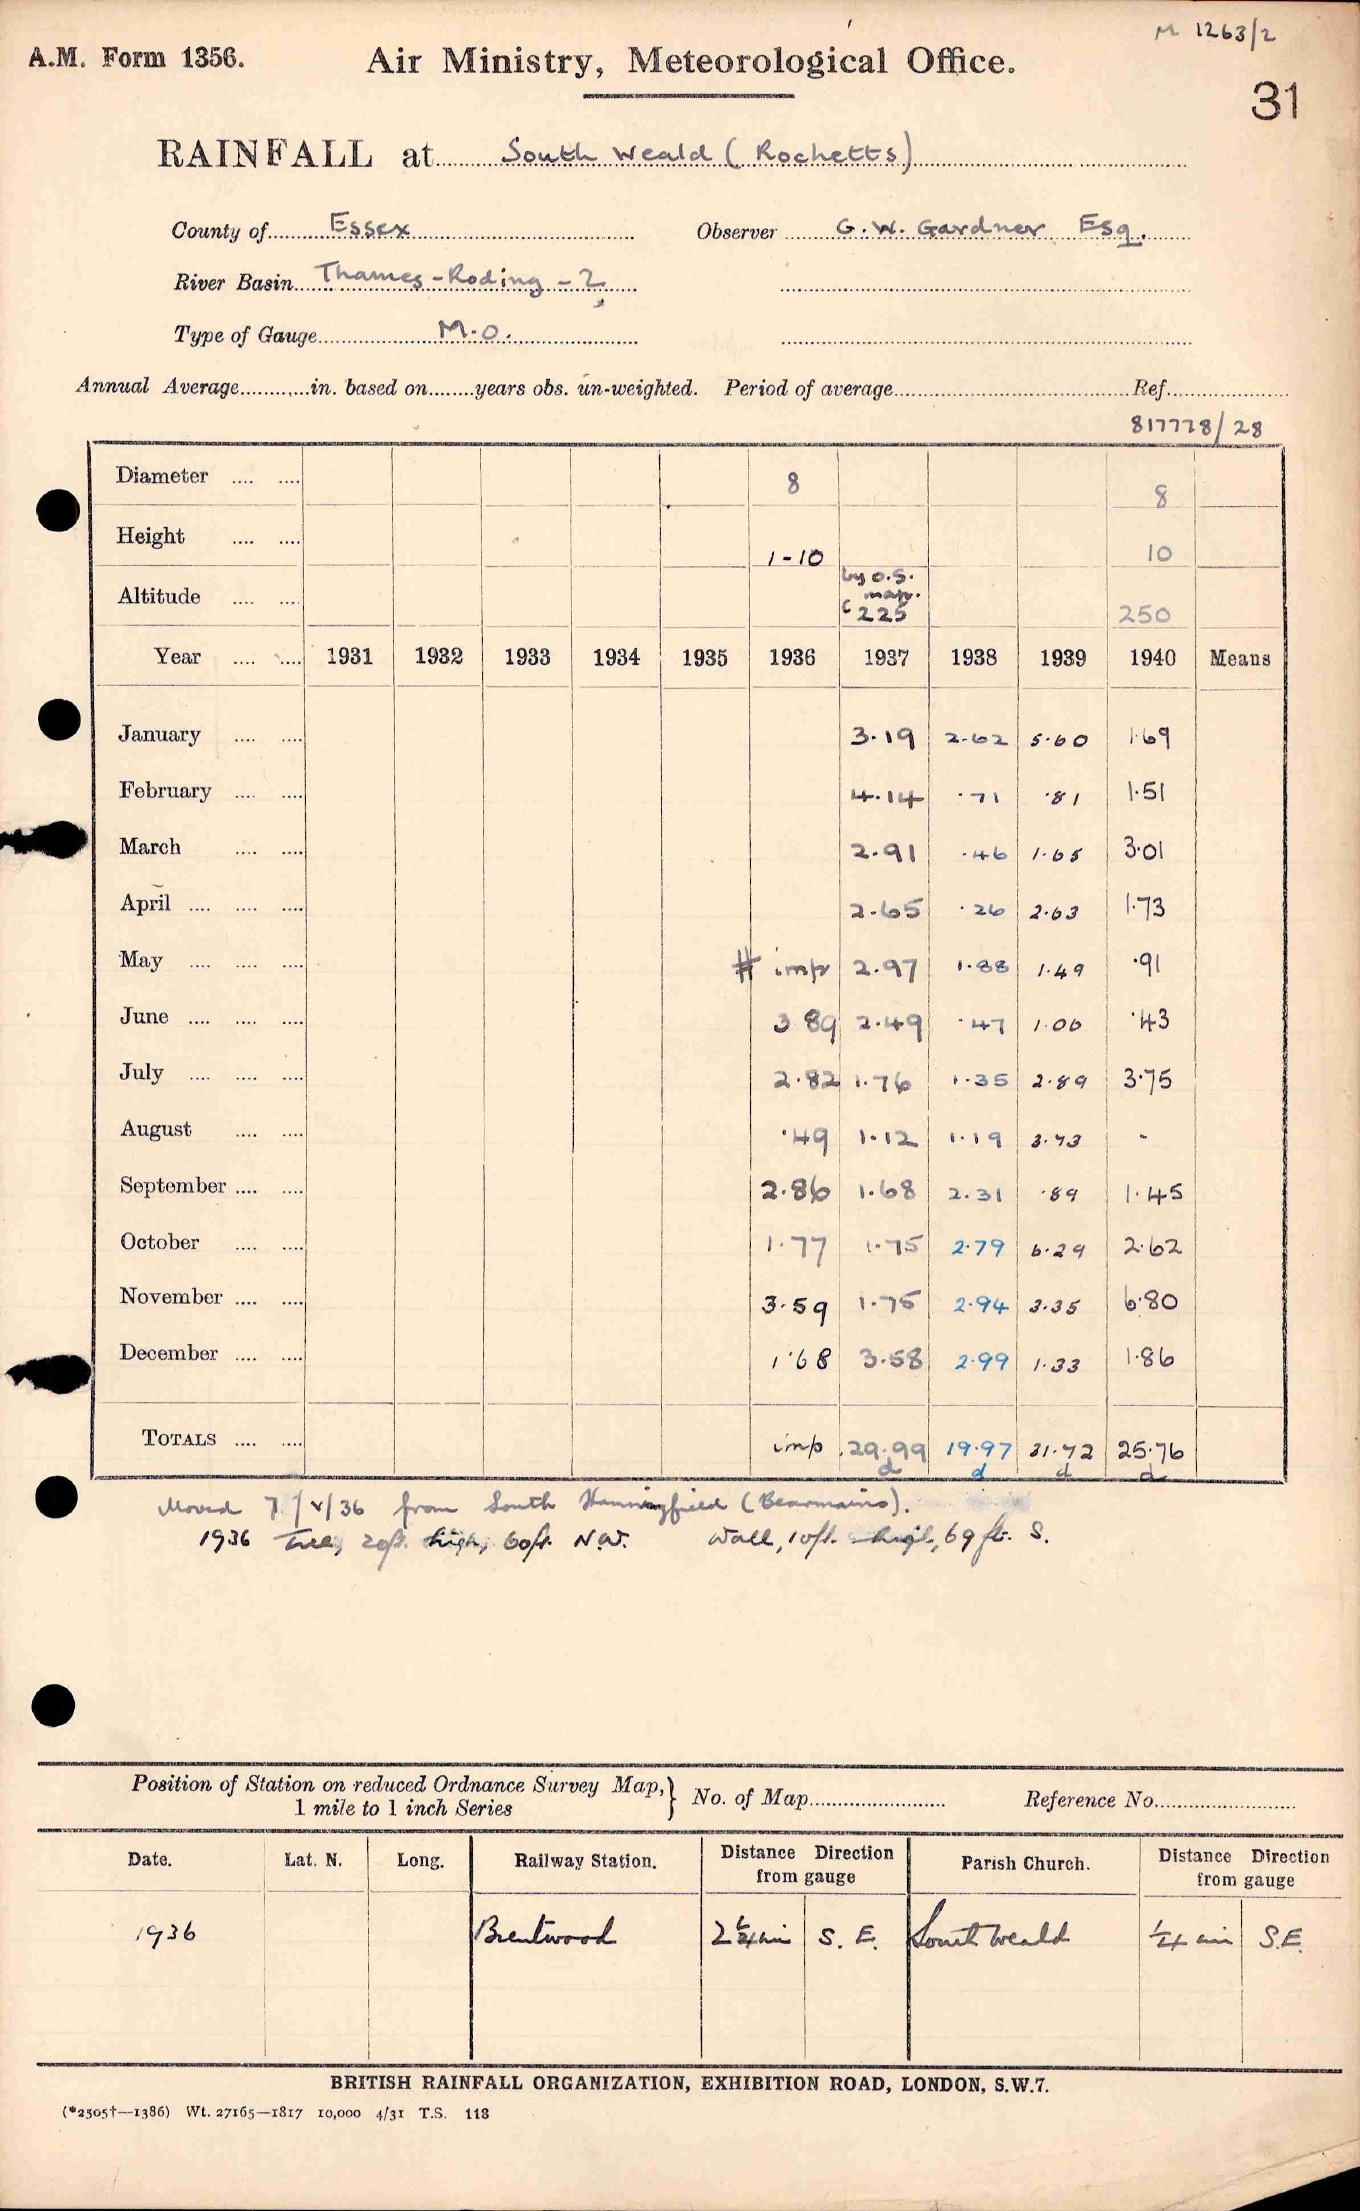 M 1263/2
A.M. Form 1356. Air Ministry, Meteorological Office.
31
RAINFALL at South Weald (Rochetts)
County of Essex Observer G. W. Gardner Esq.
River Basin Thames - Roding - 2
Type of Gauge M.O.
Annual Average in. based on years obs. un-weighted. Period of average Ref.
817778/28
Diameter 8 8
Height 1-10 10
by O.S. map.
Altitude c 225 250
Year 1931 1932 1933 1934 1935 1936 1937 1938 1939 1940 Means
January 3.19 2.62 5.60 1.69
February 4.14 .71 .81 1.51
March 2.91 .46 1.65 3.01
April 2.65 .26 2.63 1.73
May # imp 2.97 1.88 1.49 .91
June 3 89 2.49 .47 1.06 .43
July 2.82 1.76 1.35 2.89 3.75
August .49 1.12 1.19 3.73 -
September 2.86 1.68 2.31 .89 1.45
October 1.77 1.75 2.79 6.29 2.62
November 3.59 1.75 2.94 3.35 6.80
December 1.68 3.58 2.99 1.33 1.86
TOTALS imp 29.99 19.97 31.72 25.76
d d d d
Moved 7/V/36 from South Hanningfield (Bearmains).
1936 Tree, 20ft. high, 60ft. N.W. Wall, 10ft. high, 69 ft. S.
Position of Station on reduced Ordnance Survey Map, 1 mile to 1 inch Series } No. of Map Reference No.
Date. Lat. N. Long. Railway Station. Distance Direction from gauge Parish Church. Distance Direction from gauge
1936 Brentwood 2 1/4 mi S. E. South Weald 1/4 mi S.E.
BRITISH RAINFALL ORGANIZATION, EXHIBITION ROAD, LONDON, S.W.7.
(*2505†—1386) Wt. 27165—1817 10,000 4/31 T.S. 118